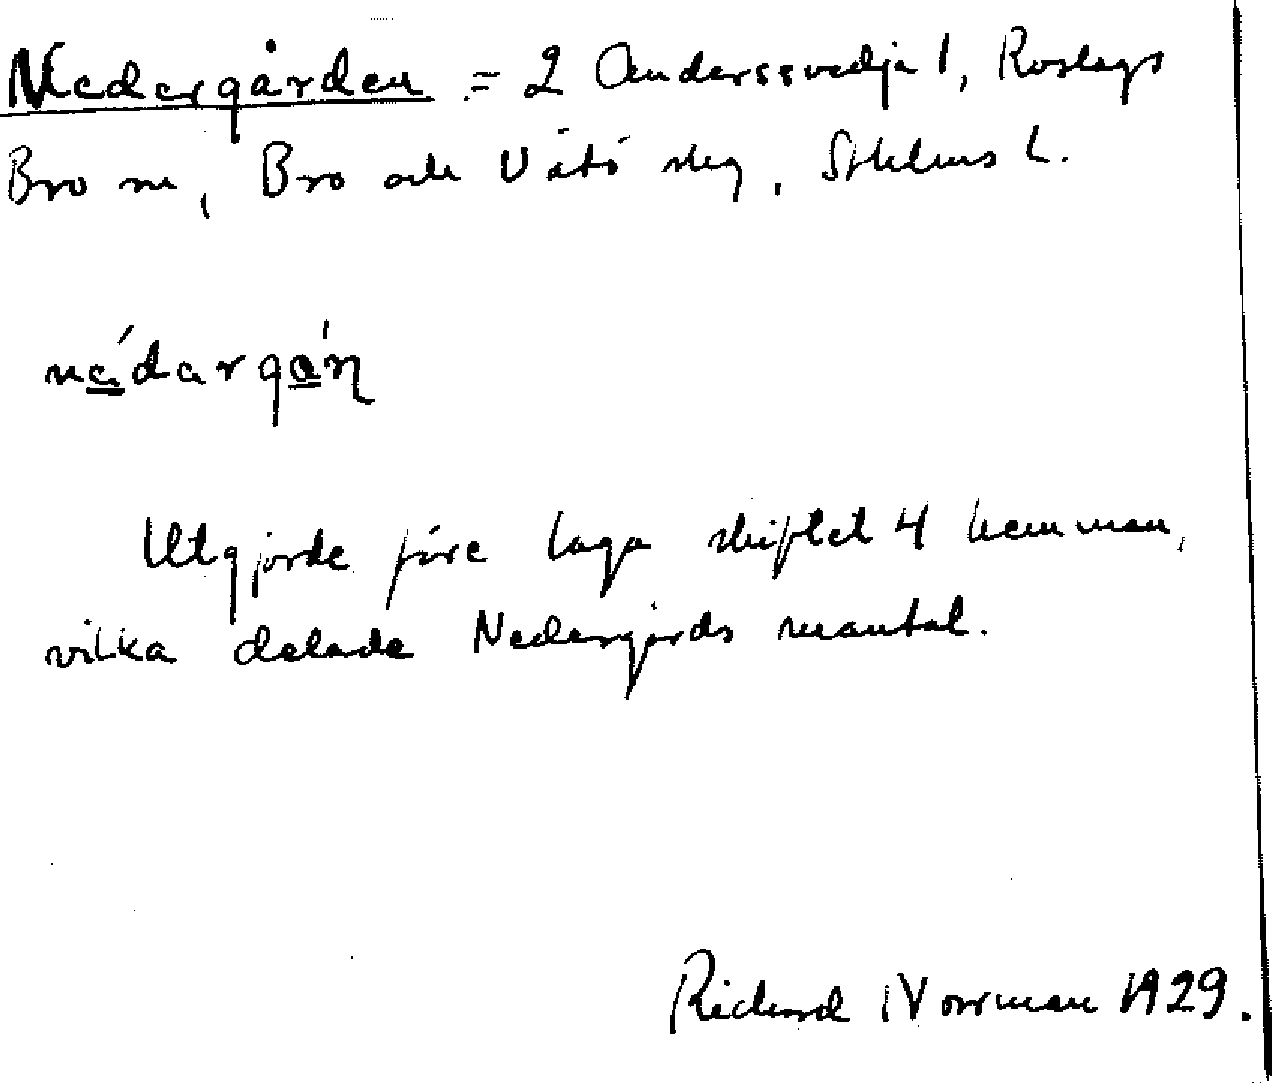 Nedergården = 2 Anderssvedja 1, Roslags
Bro sn, Bro och Vätö skg, Sthlms l.
nä́dargá̱ɳ
Utgjorde före laga skiftet 4 hemman,
vilka delade Nedergårds mantal.
Richard Norrman 1929.